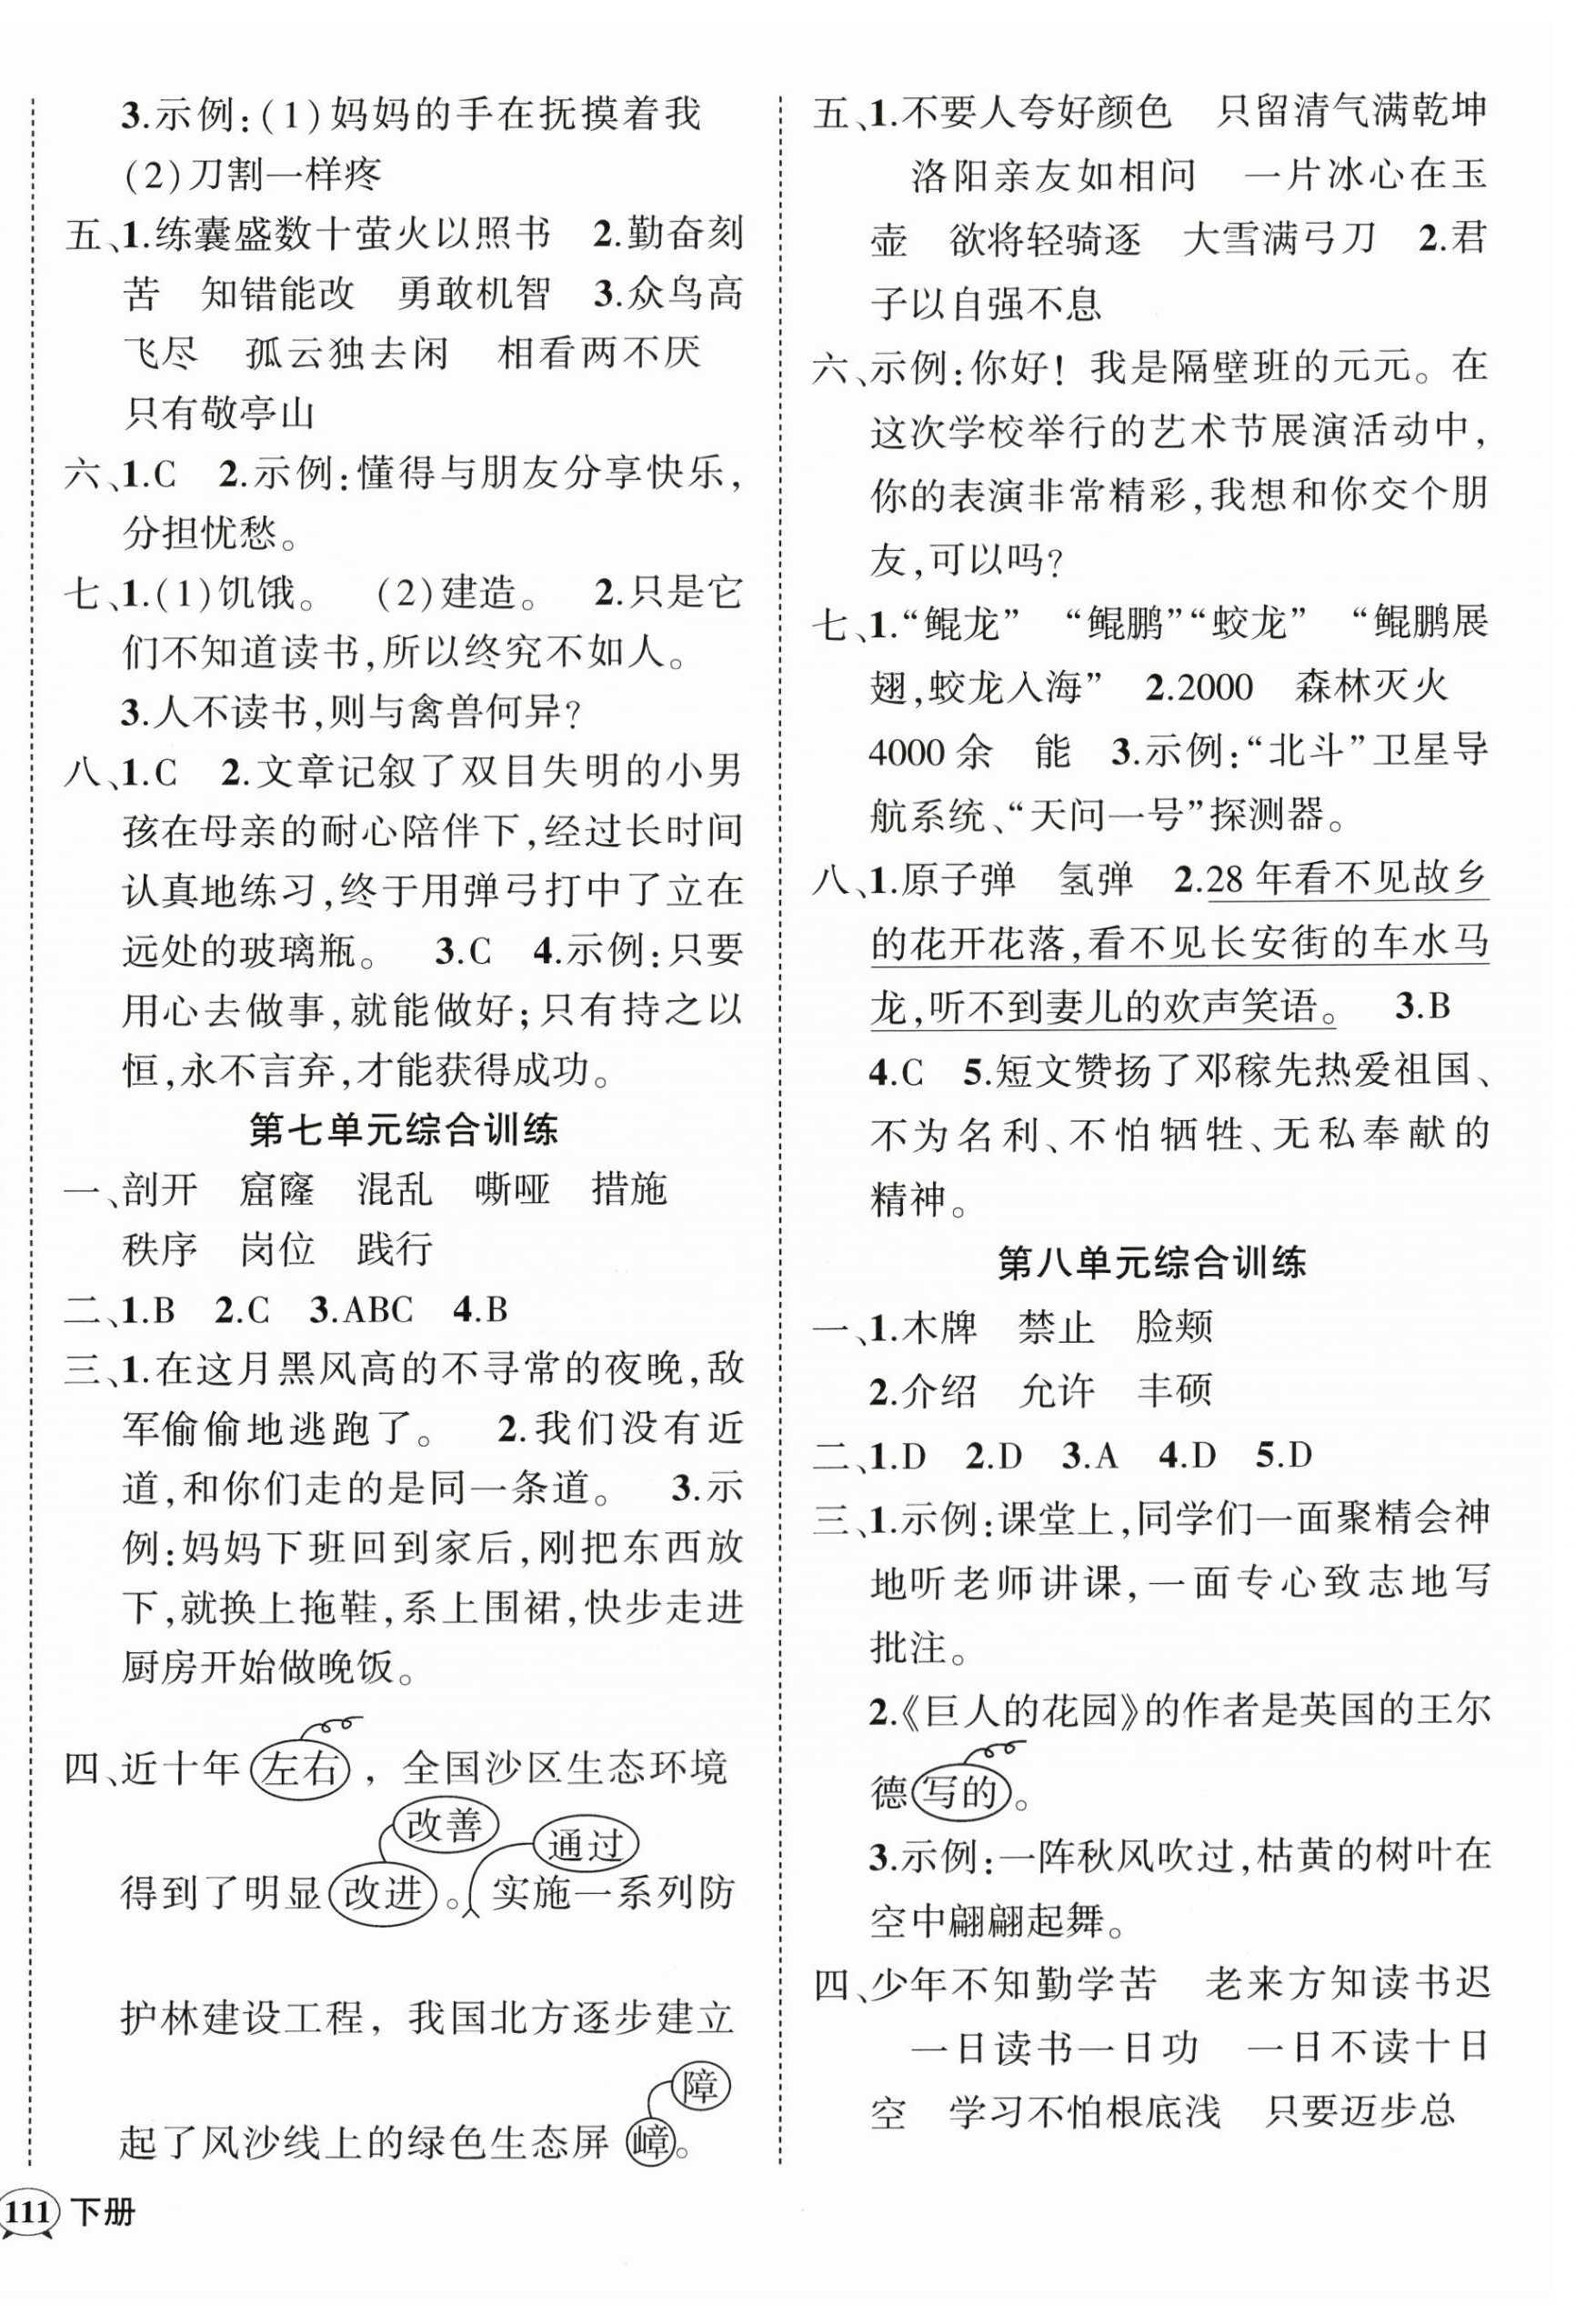 3.示例:(1)妈妈的手在抚摸着我
(2)刀割一样疼
五、1.练囊盛数十萤火以照书 2.勤奋刻
苦 知错能改 勇敢机智 3.众鸟高
飞尽 孤云独去闲 相看两不厌
只有敬亭山
六、1.C 2.示例:懂得与朋友分享快乐,
分担忧愁。
七、1.(1)饥饿。 (2)建造。 2.只是它
们不知道读书,所以终究不如人。
3.人不读书,则与禽兽何异?
八、1.C 2.文章记叙了双目失明的小男
孩在母亲的耐心陪伴下,经过长时间
认真地练习,终于用弹弓打中了立在
远处的玻璃瓶。 3.C 4.示例:只要
用心去做事,就能做好;只有持之以
恒,永不言弃,才能获得成功。
第七单元综合训练
一、剖开 窟窿 混乱 嘶哑 措施
秩序 岗位 践行
二、1.B 2.C 3.ABC 4.B
三、1.在这月黑风高的不寻常的夜晚,敌
军偷偷地逃跑了。 2.我们没有近
道,和你们走的是同一条道。 3.示
例:妈妈下班回到家后,刚把东西放
下,就换上拖鞋,系上围裙,快步走进
厨房开始做晚饭。
四、近十年左右，全国沙区生态环境
改善 通过
得到了明显改进。实施一系列防
护林建设工程，我国北方逐步建立
障
起了风沙线上的绿色生态屏嶂。
111 下册
五、1.不要人夸好颜色 只留清气满乾坤
洛阳亲友如相问 一片冰心在玉
壶 欲将轻骑逐 大雪满弓刀 2.君
子以自强不息
六、示例:你好! 我是隔壁班的元元。在
这次学校举行的艺术节展演活动中,
你的表演非常精彩,我想和你交个朋
友,可以吗?
七、1.“鲲龙” “鲲鹏”“蛟龙” “鲲鹏展
翅,蛟龙入海” 2.2000 森林灭火
4000余 能 3.示例:“北斗”卫星导
航系统、“天问一号”探测器。
八、1.原子弹 氢弹 2.28年看不见故乡
的花开花落,看不见长安街的车水马
龙,听不到妻儿的欢声笑语。 3.B
4.C 5.短文赞扬了邓稼先热爱祖国、
不为名利、不怕牺牲、无私奉献的
精神。
第八单元综合训练
一、1.木牌 禁止 脸颊
2.介绍 允许 丰硕
二、1.D 2.D 3.A 4.D 5.D
三、1.示例:课堂上,同学们一面聚精会神
地听老师讲课,一面专心致志地写
批注。
2.《巨人的花园》的作者是英国的王尔
德写的。
3.示例:一阵秋风吹过,枯黄的树叶在
空中翩翩起舞。
四、少年不知勤学苦 老来方知读书迟
一日读书一日功 一日不读十日
空 学习不怕根底浅 只要迈步总